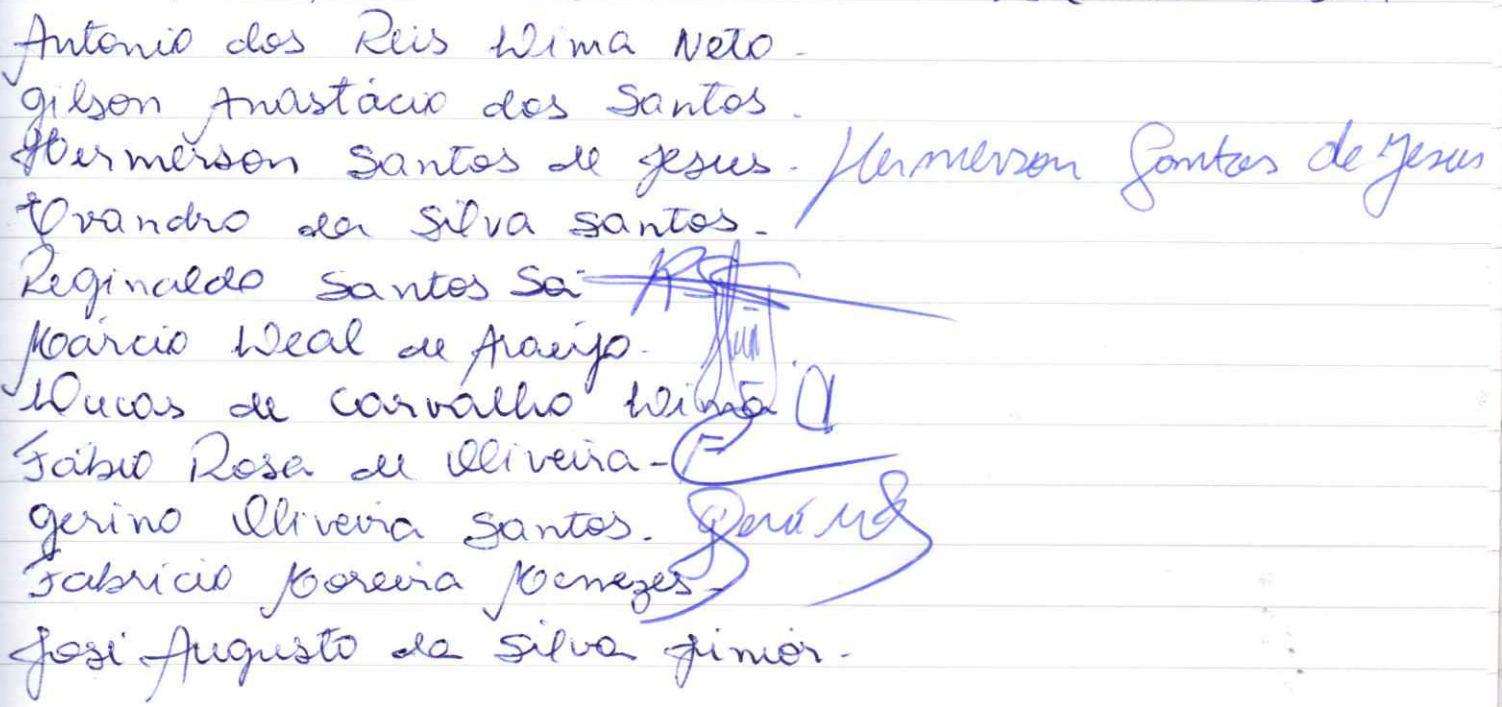 Antonio dos Reis Lima Neto.
Gilson Anastácio dos Santos.
Hermerson Santos de Jesus. Hermerson Santos de Jesus
Evandro da Silva Santos.
Reginaldo Santos Sá
Márcio Leal de Araújo.
Lucas de Carvalho Lima
Fábio Rosa de Oliveira -
Gerino Oliveira Santos.
Fabrício Moreira Menezes -
José Augusto da Silva Júnior.